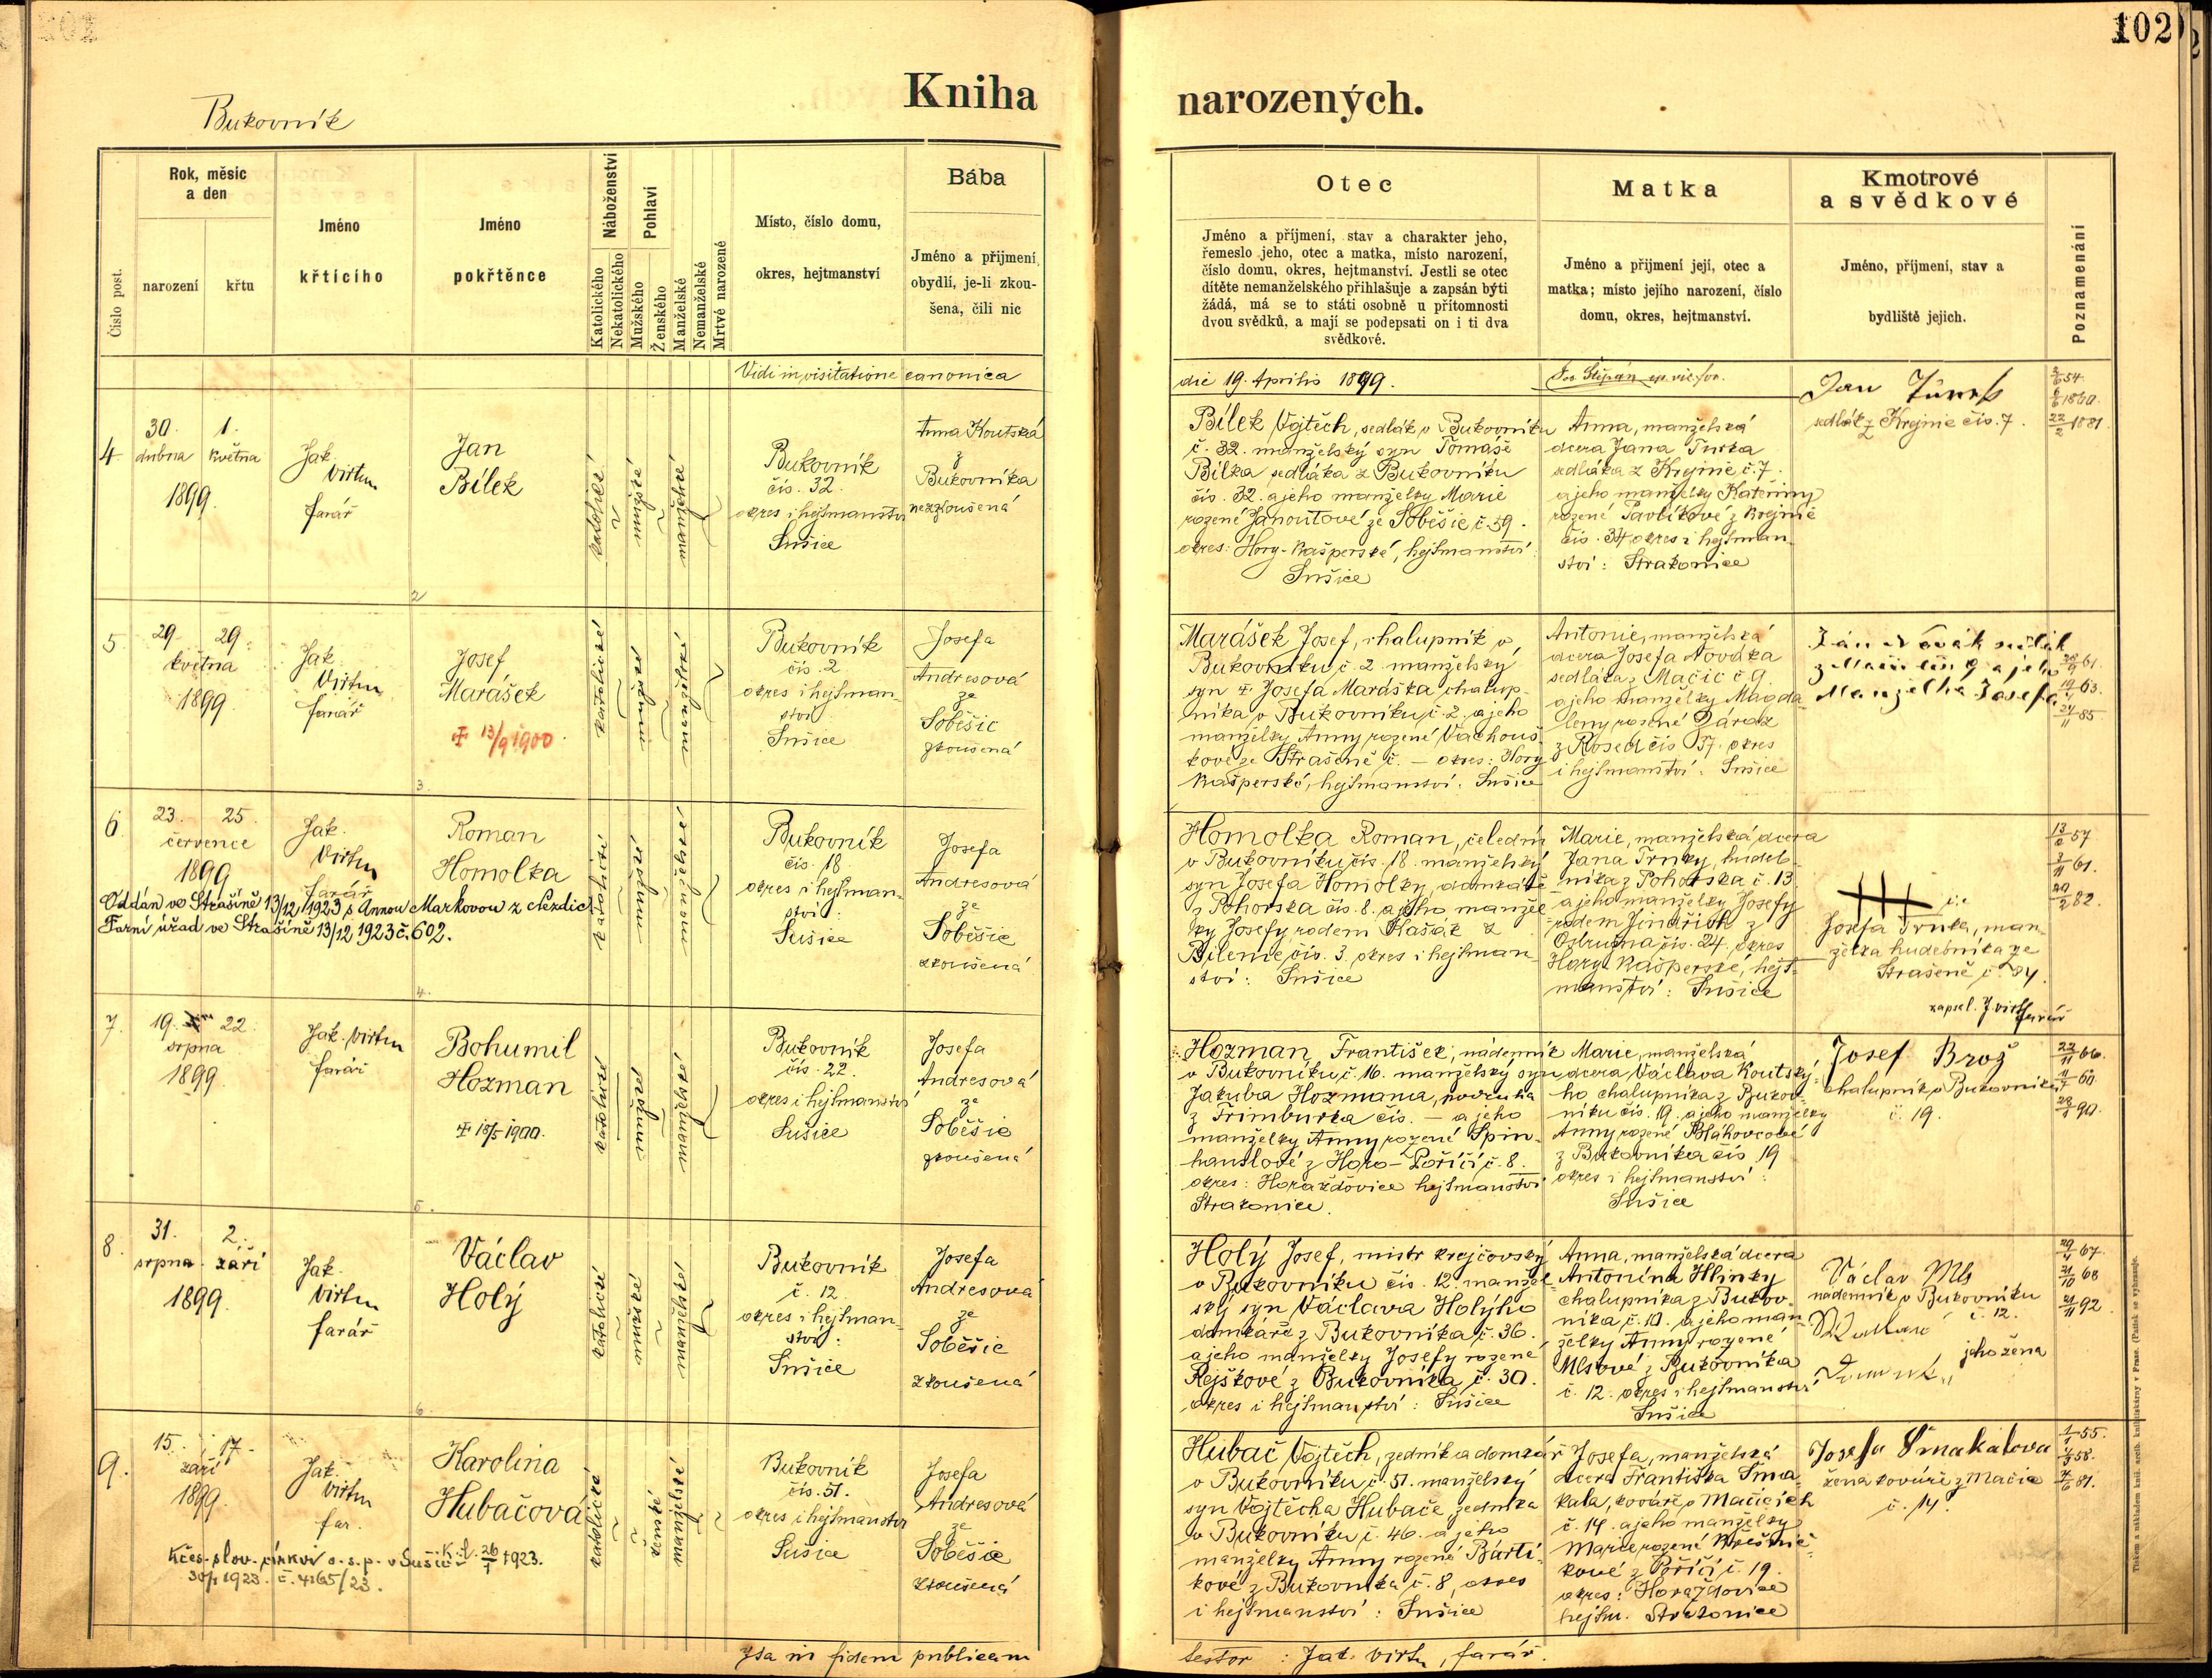 102
Kniha narozených.
Bukovník
Číslo post.
Rok, měsíc
a den
narození
křtu
Jméno
křtícího
Jméno
pokřtěnce
Náboženství
Katolického
Nekatolického
Pohlaví
Mužského
Ženského
Manželské
Nemanželské
Mrtvě narozené
Místo, číslo domu,
okres, hejtmanství
Bába
Jméno a příjmení,
obydlí, je-li zkou-
šena, čili nic
Otec
Jméno a příjmení, stav a charakter jeho,
řemeslo jeho, otec a matka, místo narození,
číslo domu, okres, hejtmanství. Jestli se otec
dítěte nemanželského přihlašuje a zapsán býti
žádá, má se to státi osobně u přítomnosti
dvou svědků, a mají se podepsati on i ti dva
svědkové.
Matka
Jméno a příjmení její, otec a
matka; místo jejího narození, číslo
domu, okres, hejtmanství.
Kmotrové
a svědkové
Jméno, příjmení, stav a
bydliště jejich.
Poznamenání
Vidi in visitatione canonica
die 19. Aprilis 1899.
Jos. Štěpán ep. vic. for.
4
30. 1.
dubna května
1899.
Jak.
Virtm
farář
Jan
Bílek
katolické
mužské
manželské
Bukovník
čís. 32.
okres i hejtmanství
Sušice
Anna Koutská
z
Bukovníka
nezkoušená
Bílek Vojtěch, sedlák v Bukovníku
č. 32. manželský syn Tomáše
Bílka sedláka z Bukovníku
čís. 32. a jeho manželky Marie
rozené Janoutové ze Soběšic č. 59.
okres: Hory-Kašperské, hejtmanství:
Sušice
Anna, manželská
dcera Jana Turka
sedláka z Krejnic č. 7.
a jeho manželky Kateřiny
rozené Pavlíkové z Krejnic
čís. 34 okres i hejtman-
ství: Strakonice
Jan
sedlák z Krejnic čís. 7.
2
5
29. 29.
května
1899.
Jak.
Virtm
farář
Josef
Marášek
13/9 1900.
katolické
mužské
manželské
Bukovník
čís. 2
okres i hejtman-
ství
Sušice
Josefa
Andresová
ze
Soběšic
zkoušená
Marášek Josef, chalupník v
Bukovníku č. 2. manželský
syn Josefa Maráška chalup-
níka v Bukovníku č. 2. a jeho
manželky Anny rozené Vachouš-
kové ze Strašeně č. — okres: Hory
Kašperské, hejtmanství: Sušice
Antonie, manželská
dcera Josefa Nováka
sedláka z Mačic č. 9.
a jeho manželky Magda-
leny rozené
čís. 57. okres
i hejtmanství: Sušice
Ján Novák sedlák
z Mačic čís. 9 a jeho
Manželka Josefa
3.
6.
23. 25.
července
1899
Jak.
Virtm
farář
Roman
Homolka
Oddán ve Strašíně 13/12 1923 s Annou Markovou z Nezdic
Farní úřad ve Strašíně 13/12 1923 č. 602.
katolické
mužské
manželské
Bukovník
čís. 18.
okres i hejtman-
ství:
Sušice
Josefa
Andresová
ze
Soběšic
zkoušená
Homolka Roman, čeledín
v Bukovníku čís. 18. manželský
syn Josefa Homolky, domkáře
z Pohorska čís. 8. a jeho manžel-
ky Josefy rodem Kašák z
Bílenic čís. 3. okres i hejtman-
ství: Sušice
Marie, manželská dcera
Jana Trnky, hudeb-
níka z Pohorska č. 13
a jeho manželky Josefy
rodem Jindřich z
Ostružna čís. 24. okres
Hory Kašperské, hejt-
manství: Sušice
Josefa Trnka, man-
želka hudebníka ze
Strašeně č. 84.
zapsal J. Virtm farář
4.
7.
19. 22.
srpna
1899.
Jak. Virtm
farář
Bohumil
Hozman
18/5 1900.
katolické
mužské
manželské
Bukovník
čís. 22.
okres i hejtmanství
Sušice
Josefa
Andresová
ze
Soběšic
zkoušená
Hozman František, nádenník
v Bukovníku č. 16. manželský syn
Jakuba Hozmana, podruha
z Frimburka čís. — a jeho
manželky Anny rozené Spin-
hanslové z Horo-Poříčí č. 8.
okres: Horažďovice hejtmanství
Strakonice.
Marie, manželská
dcera Václava Koutský-
ho chalupníka z Bukov-
níku čís. 19. a jeho manželky
Anny rozené Bláhovcové
z Bukovníka čís. 19
okres i hejtmanství:
Sušice
Josef Brož
chalupník v Bukovníku
č. 19.
5.
8.
31. 2.
srpna září
1899.
Jak.
Virtm
farář
Václav
Holý
katolické
mužské
manželské
Bukovník
č. 12.
okres i hejtman-
ství:
Sušice
Josefa
Andresová
ze
Soběšic
zkoušená
Holý Josef, mistr krejčovský
v Bukovníku čís. 12. manžel-
ský syn Václava Holýho
domkáře z Bukovníka č. 36.
a jeho manželky Josefy rozené
Rejškové z Bukovníka č. 30.
okres i hejtmanství: Sušice
Anna, manželská dcera
Antonína Hlinky
chalupníka z Bukov-
níka č. 10. a jeho man-
želky Anny rozené
Mlsové z Bukovníka
č. 12. okres i hejtmanství
Sušice
Václav Mls
nádenník v Bukovníku
č. 12.
jeho žena
6.
9.
15. 17.
září
1899.
Jak.
Virtm
far.
Karolina
Hubačová
K čes.-slov. církvi o. s. p. v Sušici
30/1 1923. č. 4165/23.
katolické
ženské
manželské
Bukovník
čís. 51.
okres i hejtmanství
Sušice
Josefa
Andresová
ze
Soběšic
zkoušená
Hubač Vojtěch, zedník a domkář
v Bukovníku č. 51. manželský
syn Vojtěcha Hubače zedníka
v Bukovníku č. 46. a jeho
manželky Anny rozené Bárti-
kové z Bukovníka č. 8, okres
i hejtmanství: Sušice
Josefa, manželská
dcera Františka Šma-
kala, kováře v Mačicích
č. 14. a jeho manželky
Marie rozené
kové z Poříčí č. 19.
okres: Horažďovice
hejtm. Strakonice
Josefa Šmakalova
žena kováře z Mačic
č. 14.
Ita in fidem publicam
testor: Jak. Virtm, farář.